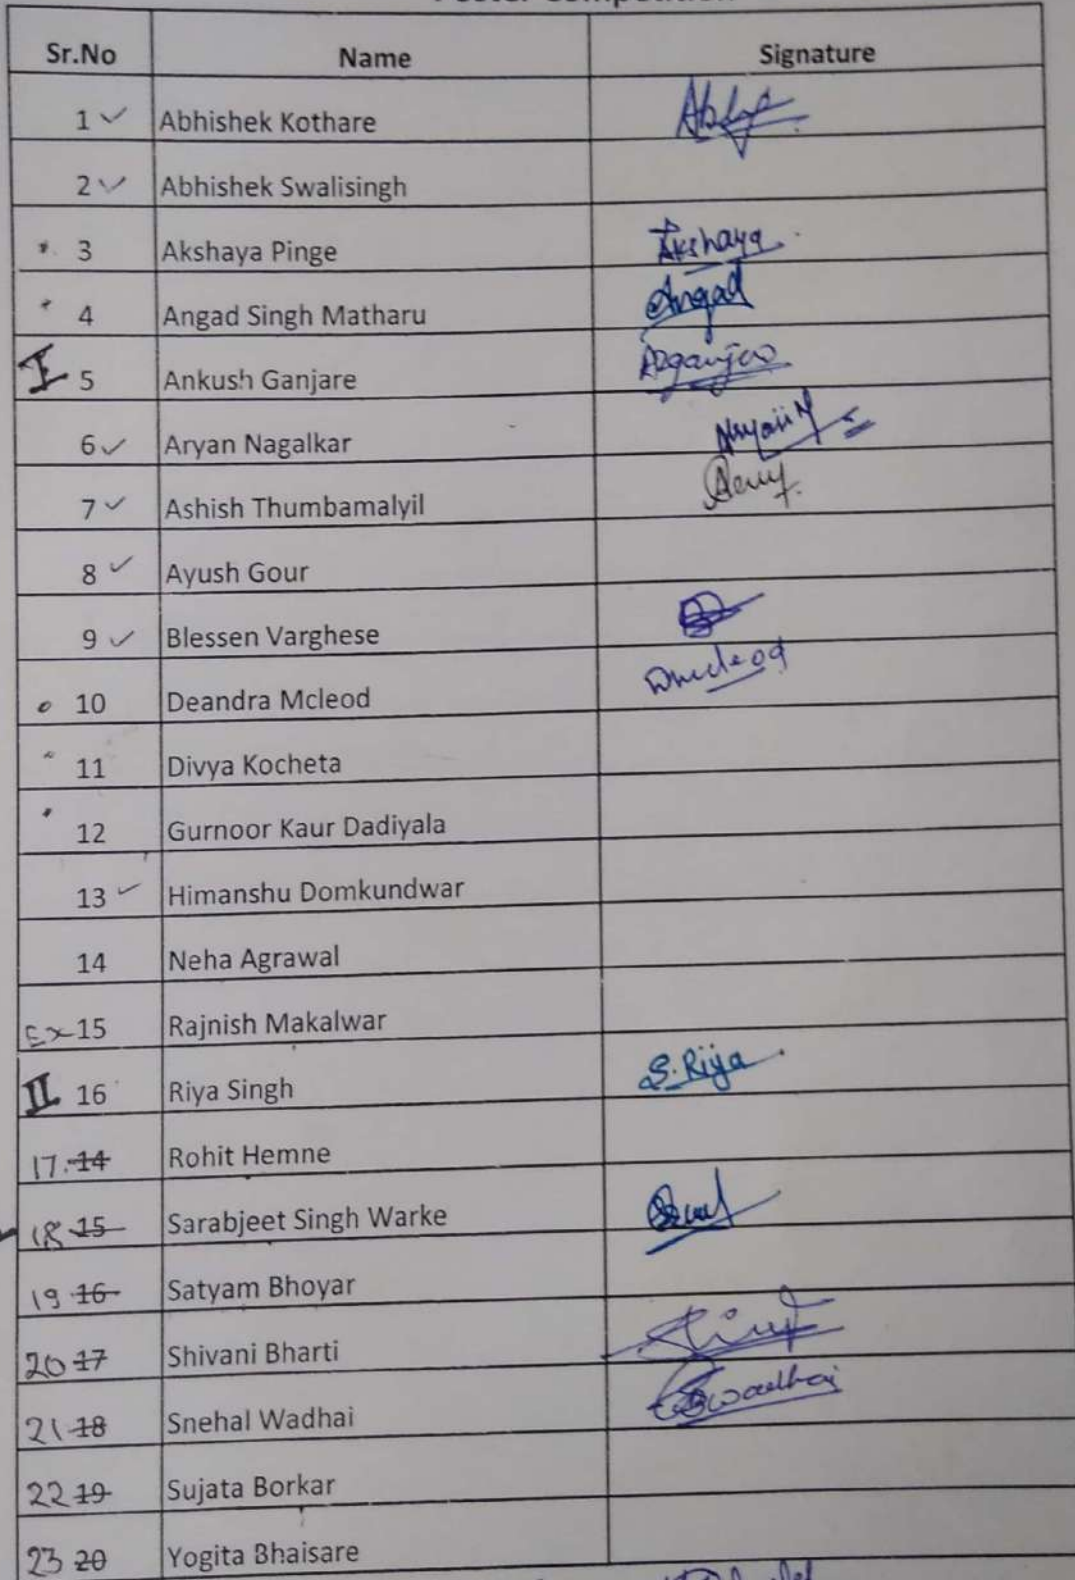 Poster Competition
Sr.No Name Signature
1 ✓ Abhishek Kothare
2 ✓ Abhishek Swalisingh
3 Akshaya Pinge Akshaya
4 Angad Singh Matharu Angad
I 5 Ankush Ganjare
6 ✓ Aryan Nagalkar AryanN
7 ✓ Ashish Thumbamalyil
8 ✓ Ayush Gour
9 ✓ Blessen Varghese
10 Deandra Mcleod Dmcleod
11 Divya Kocheta
12 Gurnoor Kaur Dadiyala
13 ✓ Himanshu Domkundwar
14 Neha Agrawal
Ex 15 Rajnish Makalwar
II 16 Riya Singh S.Riya
17. 14 Rohit Hemne
18 15 Sarabjeet Singh Warke
19 16 Satyam Bhoyar
20 17 Shivani Bharti
21 18 Snehal Wadhai Swadhai
22 19 Sujata Borkar
23 20 Yogita Bhaisare